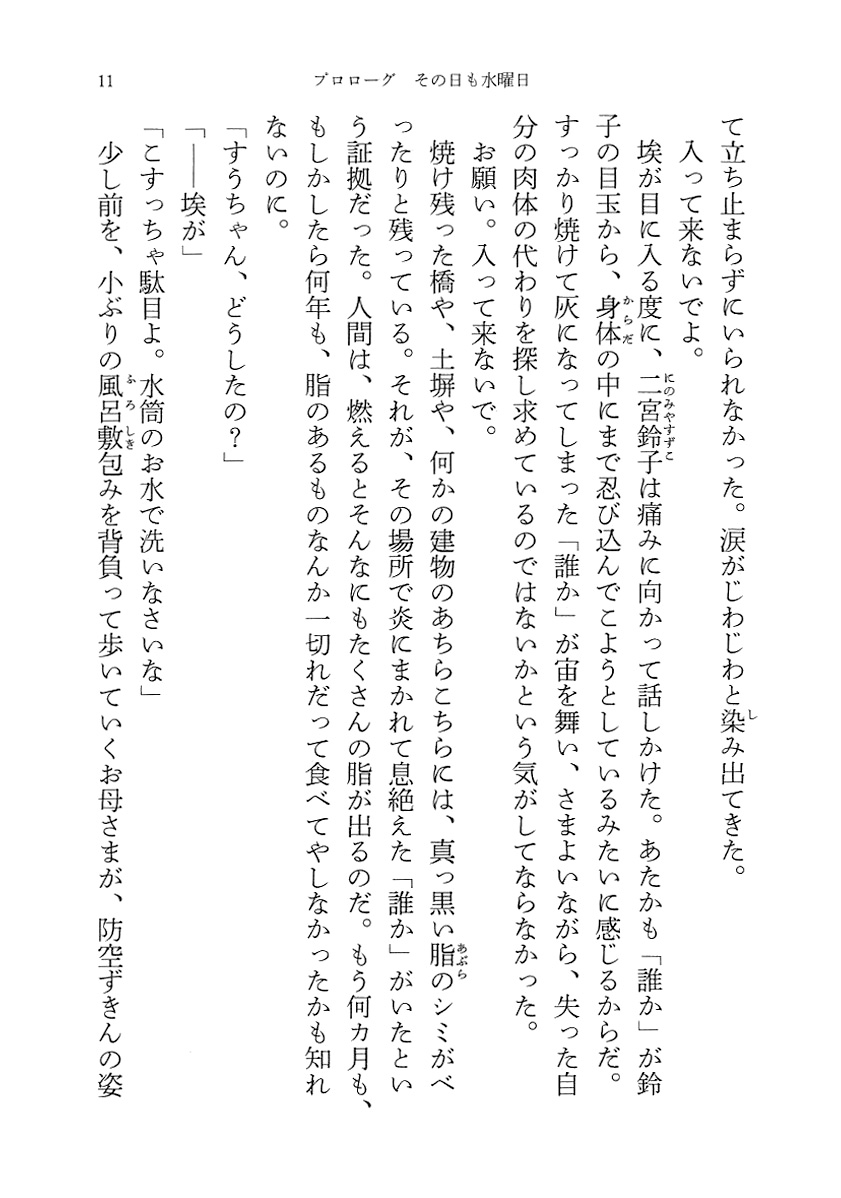 11
プロローグ　その日も水曜日
て立ち止まらずにいられなかった。涙がじわじわと染み出てきた。
　入って来ないでよ。
　埃が目に入る度に、二宮鈴子は痛みに向かって話しかけた。あたかも「誰か」が鈴
子の目玉から、身体の中にまで忍び込んでこようとしているみたいに感じるからだ。
すっかり焼けて灰になってしまった「誰か」が宙を舞い、さまよいながら、失った自
分の肉体の代わりを探し求めているのではないかという気がしてならなかった。
　お願い。入って来ないで。
　焼け残った橋や、土塀や、何かの建物のあちらこちらには、真っ黒い脂のシミがべ
ったりと残っている。それが、その場所で炎にまかれて息絶えた「誰か」がいたとい
う証拠だった。人間は、燃えるとそんなにもたくさんの脂が出るのだ。もう何カ月も、
もしかしたら何年も、脂のあるものなんか一切れだって食べてやしなかったかも知れ
ないのに。
「すうちゃん、どうしたの？」
「――埃が」
「こすっちゃ駄目よ。水筒のお水で洗いなさいな」
　少し前を、小ぶりの風呂敷包みを背負って歩いていくお母さまが、防空ずきんの姿